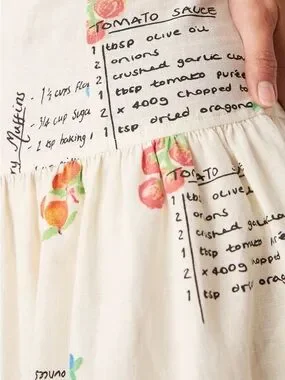 TOMATO SAUCE
1 tbsp olive oil
2 onions
2 crushed garlic
1 tbsp tomato purée
2 x 400g chopped to
1 tsp dried oragano
Muffins
- 1 ½ cups
- 3/4 cup suga
- 2 tsp baking
TOMATO SAUCE
1 tbs olive
2 onions
2 crushed garlic
1 tbsp tomato
2 x 400g chopped
1 tsp dried